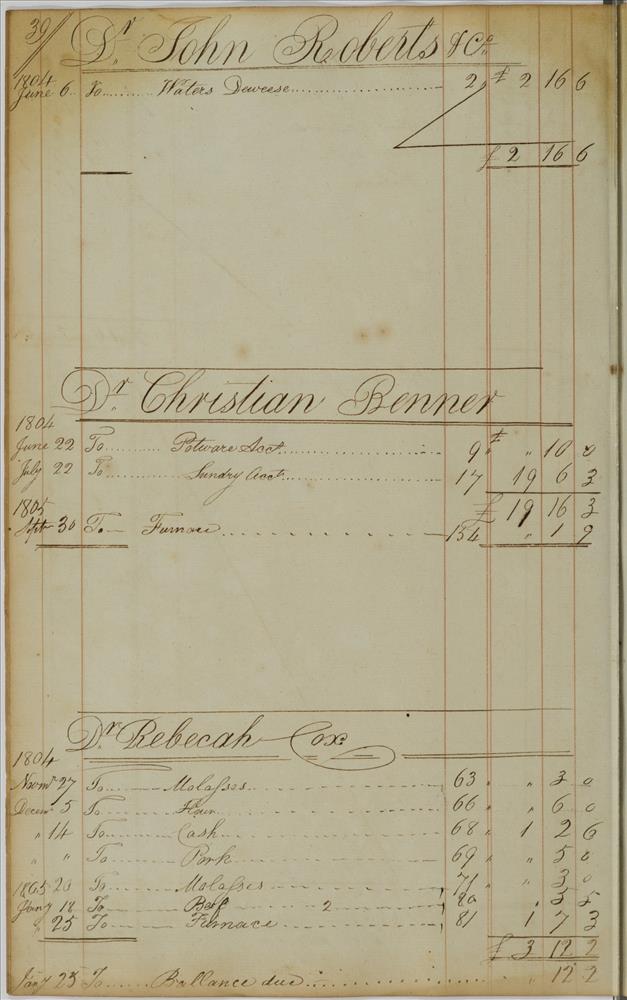 39
Dr John Roberts & Co
1804
June 6 To Waters Deweese 2 £ 2 16 6
£ 2 16 6
Dr Christian Benner
1804
June 22 To Potware Acct 9 £ " 10 0
July 22 To Sundry Acct 17 19 6 3
£ 19 16 3
1805
Sept 30 To Furnace 154 " 1 9
Dr Rebecah Cox
1804
Novmr 27 To Molasses 63 " " 3 0
Decemr 5 To Flour 66 " " 6 0
" 14 To Cash 68 " 1 2 6
" " To Pork 69 " " 5 0
20 To Molasses 71 " " 3 0
1805
Jany 18 To Beef 2 80 " 5 5
" 25 To Furnace 81 1 7 3
£ 3 12 2
Jany 25 To Ballance due " 12 2